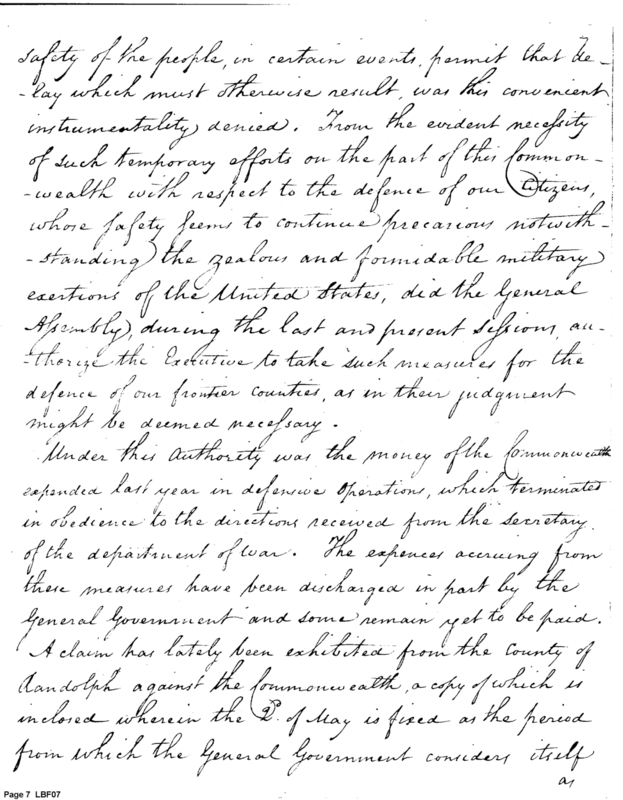 safety of the people, in certain events, permit that de-
-lay which must otherwise result, was this convenient
instrumentality denied. From the evident necessity
of such temporary efforts on the part of this Common-
-wealth with respect to the defence of our Citizens,
whose safety seems to continue precarious notwith-
-standing the zealous and formidable military
exertions of the United States, did the General
Assembly, during the last and present sessions, au-
-thorize the Executive to take such measures for the
defence of our frontier counties, as in their judgment
might be deemed necessary.
Under this Authority was the money of the Commonwealth
expended last year in defensive Operations, which terminated
in obedience to the directions received from the Secretary
of the department of War. The expences accruing from
these measures have been discharged in part by the
General Government and some remain yet to be paid.
A claim has lately been exhibited from the County of
Randolph against the Commonwealth, a copy of which is
inclosed wherein the 2d. of May is fixed as the period
from which the General Government considers itself
as
Page 7 LBF07